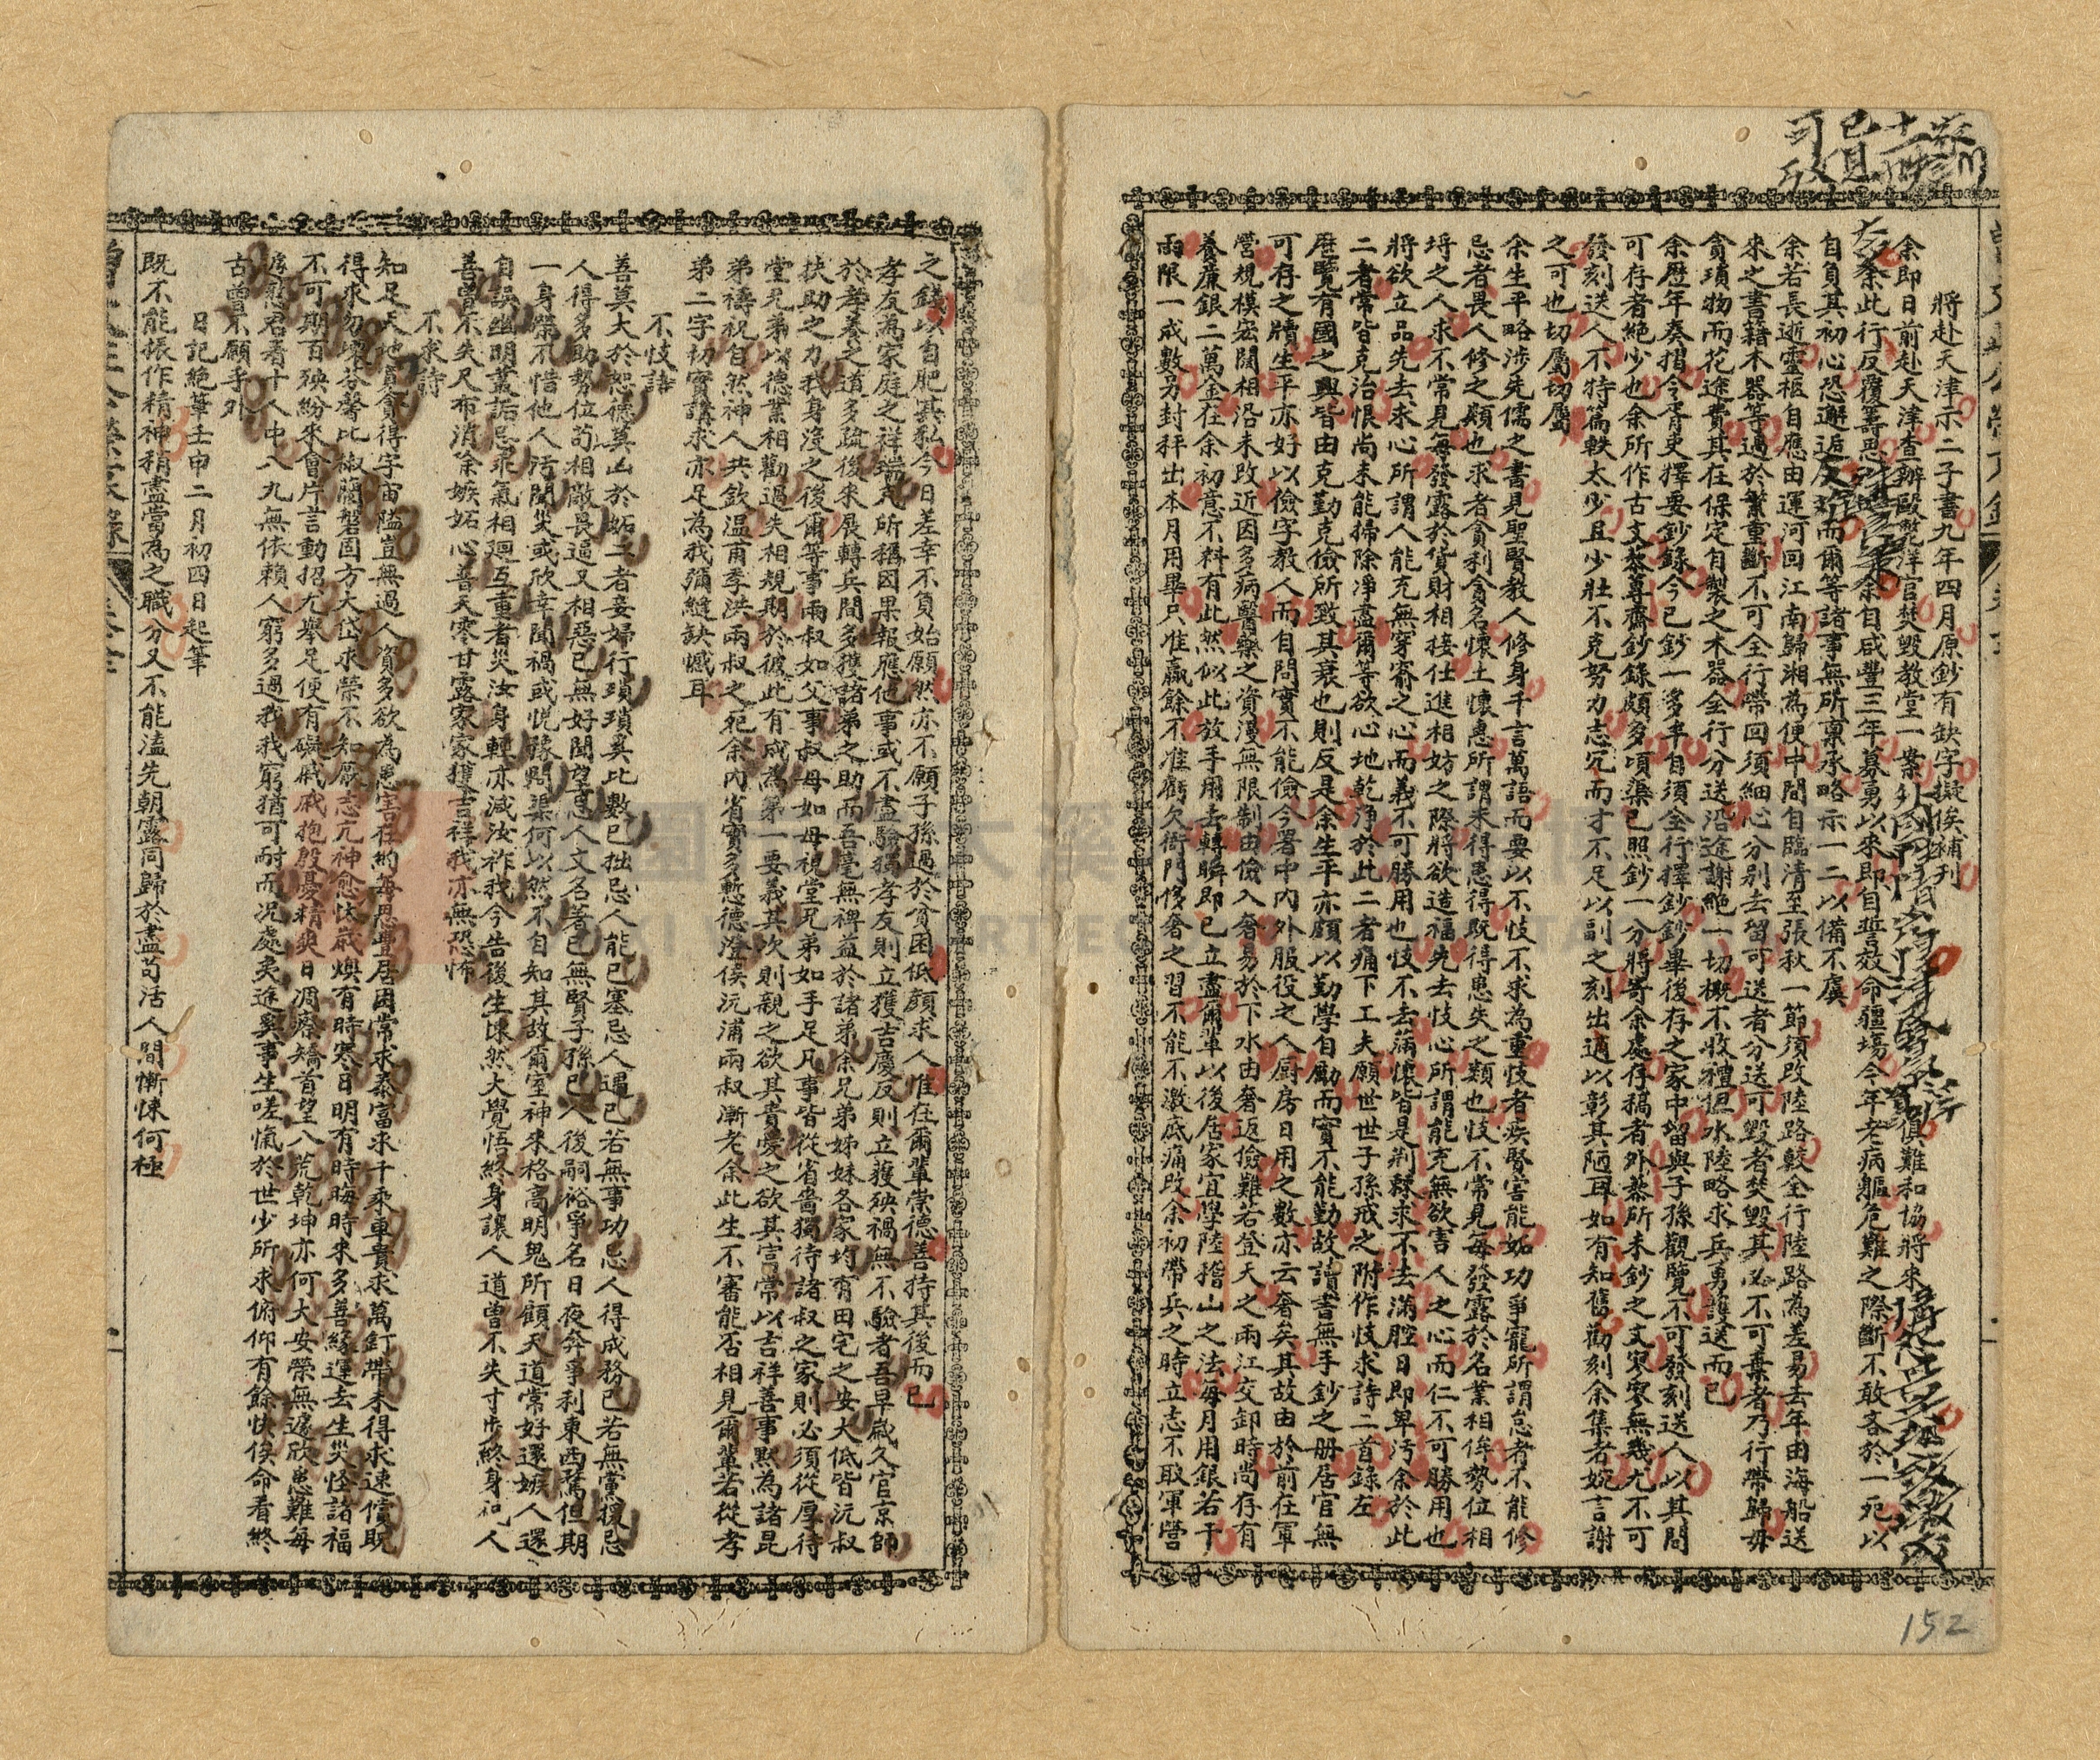 將赴天津示二子書九年四月原鈔有缺字擬俟補刊
余即日前赴天津查辦毆斃洋官焚毀教堂一案外國性情 俱難和協將來
余此行反覆籌思 余自咸豐三年募勇以來即自誓效命疆場今年老病軀危難之際斷不敢吝於一死以
自負其初心恐邂逅及難而爾等諸事無所稟承略示一二以備不虞
余若長逝靈柩自應由運河回江南歸湘為便中間自臨清至張秋一節須改陸路較全行陸路為差易去年由海船送
來之書籍木器等過於繁重斷不可全行帶回須細心分別去留可送者分送可毀者焚毀其必不可棄者乃行帶歸毋
貪瑣物而花途費其在保定自製之木器全行分送沿途謝絕一切概不收禮但水陸略求兵勇護送而已
余歷年奏摺令胥吏擇要鈔錄今已鈔一多半自須全行擇鈔鈔畢後存之家中留與子孫觀覽不可發刻送人以其間
可存者絕少也余所作古文黎蓴齋鈔錄頗多頃渠已照鈔一分將寄余處存稿者外黎所未鈔之文寥寥無幾尤不可
發刻送人不特篇軼太少且少壯不克努力志亢而才不足以副之刻出適以彰其陋耳如有知舊勸刻余集者婉言謝
之可也切屬切屬
余生平略涉先儒之書見聖賢教人修身千言萬語而要以不忮不求為重忮者疾賢害能妬功爭寵所謂怠者不能修
忌者畏人修之類也求者貪利貪名懷土懷惠所謂未得患得既得患失之類也忮不常見每發露於名業相侔勢位相
埒之人求不常見每發露於貨財相接仕進相妨之際將欲造福先去忮心所謂能充無欲害人之心而仁不可勝用也
將欲立品先去求心所謂人能充無穿窬之心而義不可勝用也忮不去滿懷皆是荆棘求不去滿腔日即卑污余於此
二者常皆克治恨尚未能掃除淨盡爾等欲心地乾淨於此二者痛下工夫願世世子孫戒之附作忮求詩二首錄左
歷覽有國之興皆由克勤克儉所致其衰也則反是余生平亦頗以勤學自勵而實不能勤故讀書無手鈔之册居官無
可存之牘生平亦好以儉字教人而自問實不能儉今署中內外服役之人厨房日用之數亦云奢矣其故由於前在軍
營規模宏闊相沿未改近因多病醫藥之資漫無限制由儉入奢易於下水由奢返儉難若登天之兩江交卸時尚存有
養廉銀二萬金在余初意不料有此然似此放手用去轉瞬即已立盡爾輩以後居家宜學陸梭山之法每月用銀若干
兩限一成數另封秤出本月用畢只准贏餘不准虧欠衙門侈奢之習不能不激底痛改余初帶兵之時立志不取軍營
之錢以自肥其私今日差幸不負始願然亦不願子孫過於貧困低顏求人惟在爾輩崇德善持其後而已
孝友為家庭之祥瑞凡所稱因果報應他事或不盡驗獨孝友則立獲吉慶反則立獲殃禍無不驗者吾早歲久官京師
於孝養之道多疏後來展轉兵間多獲諸弟之助而吾毫無裨益於諸弟余兄弟姊妹各家均有田宅之安大低皆沅叔
扶助之力我身沒之後爾等事兩叔如父事叔母如母視堂兄弟如手足凡事皆從省嗇獨待諸叔之家則必須從厚待
堂兄弟以德業相勸過失相規期於彼此有成為第一要義其次則親之欲其貴愛之欲其富常以吉祥善事默為諸昆
弟禱祝自然神人共欽溫甫季洪兩叔之死余內省實多慙德澄侯沅浦兩叔漸老余此生不審能否相見爾輩若從孝
弟二字切實講求亦足為我彌縫缺憾耳
不忮詩
善莫大於恕德莫凶於妬妬者妾婦行瑣瑣奚比數己拙忌人能己塞忌人遇己若無事功忌人得成務己若無黨援忌
人得多助勢位苟相敵畏逼又相惡己無好聞望忌人文名著己無賢子孫忌人後嗣裕爭名日夜奔爭利東西騖但期
一身榮不惜他人汚聞災或欣幸聞禍或悅豫問渠何以然不自知其故爾室神來格高明鬼所顧天道常好還嫉人還
自誤幽明叢詬忌乖氣相迴互重者災汝身輕亦減汝祚我今告後生悚然大覺悟終身讓人道曾不失寸步終身祝人
善曾不失尺布消除嫉妬心普天零甘露家家獲吉祥我亦無恐怖
不求詩
知足天地寬貪得宇宙隘豈無過人資多欲為患害在約每思豐居困常求泰富求千乘車貴求萬釘帶未得求速償既
得求勿壞芬馨比椒蘭磐固方大岱求榮不知厭志亢神愈忲歲燠有時寒日明有時晦時來多善緣運去生災怪諸福
不可期百殃紛來會片言動招尤舉足便有礙戚戚抱殷憂精爽日凋瘵矯首望八荒乾坤亦何大安榮無遽欣患難毋
遽憝君看十人中八九無依賴人窮多過我我窮猶可耐而况處夷途奚事生嗟愾於世少所求俯仰有餘快俟命看終
古曾不願乎外
日記絕筆壬申二月初四日起筆
既不能振作精神稍盡當為之職分又不能溘先朝露同歸於盡苟活人間慚悚何極
152